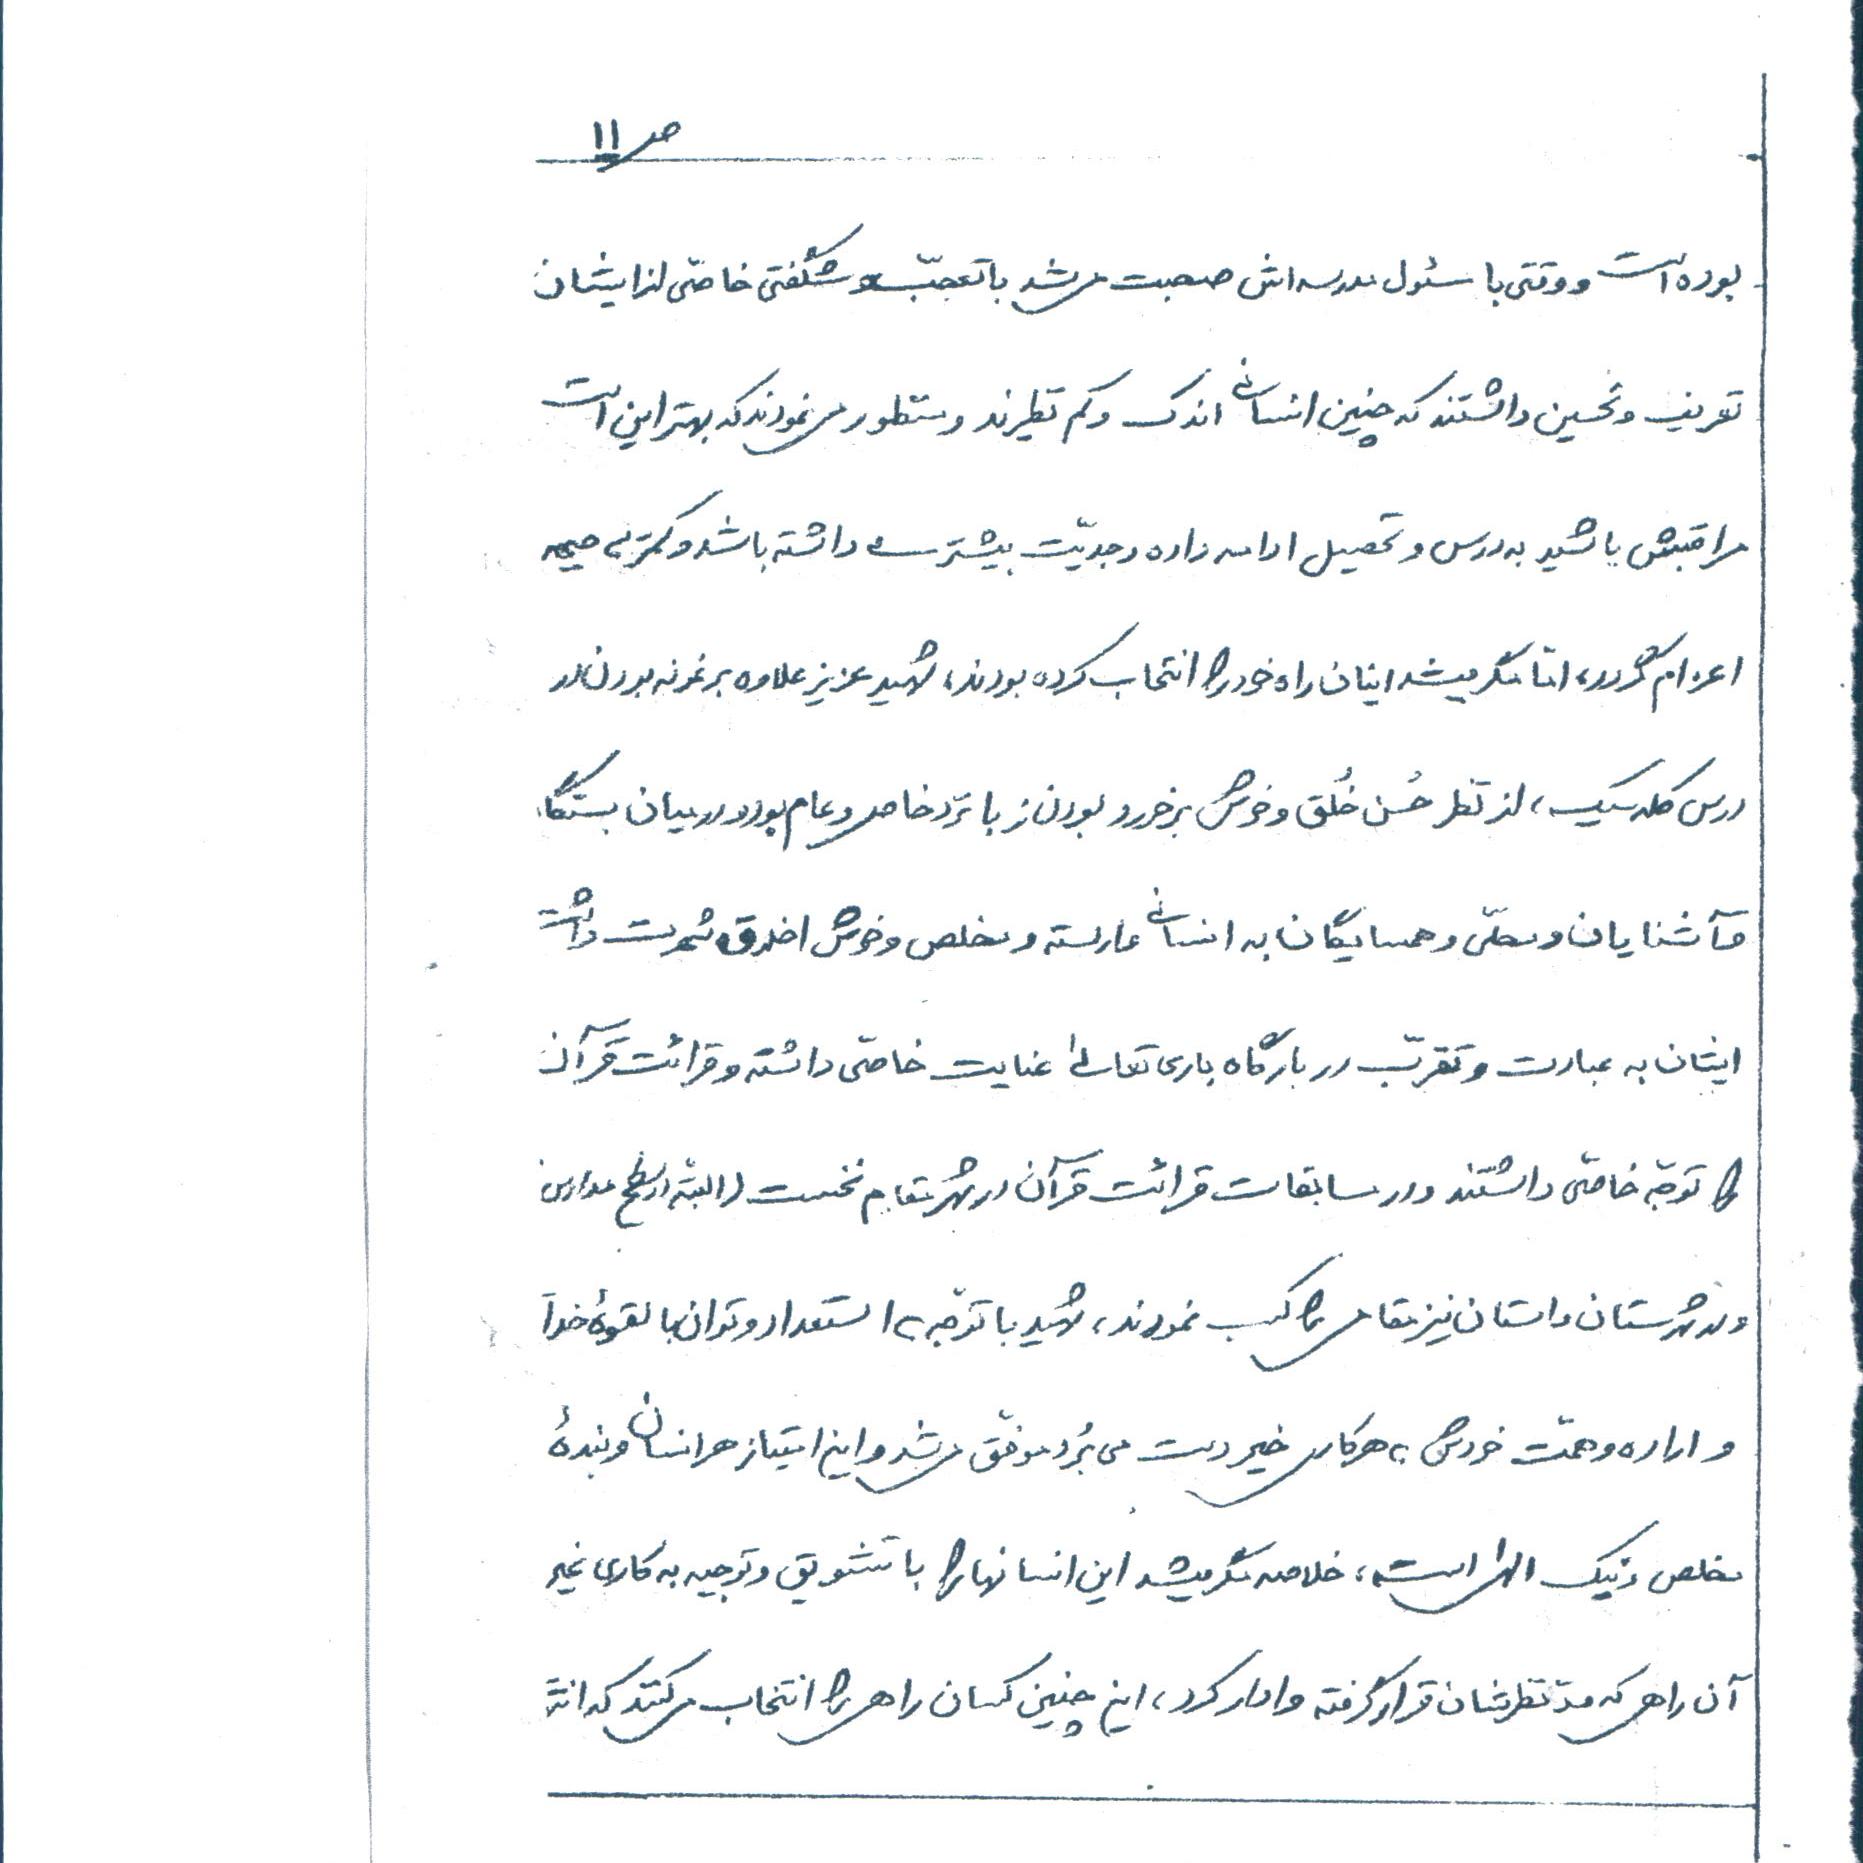 ص ۱۱
بوده است و وقتی با مسئول مدرسه اش صحبت می شد با تعجّب و شگفتی خاصّی از ایشان
تعریف و تحسین داشتند که چنین انسانی اندک و کم نظیرند و منظور می نمودند که بهتر این است
مراقبش باشید به درس و تحصیل ادامه داده و جدیّت بیشتری داشته باشد و کمتر به جبهه
اعزام گردد، امّا مگر میشد اینان راه خود را انتخاب کرده بودند، شهید عزیز علاوه بر نمونه بودن در
درس کلاسیک، از نظر حُسن خُلق و خوش برخورد بودن زبانزد خاص و عام بود و در میان بستگان
و آشنایان و محلّی و همسایگان به انسانی وارسته و مخلص و خوش اخلاق شهرت داشت
ایشان به عبادت و تقرّب در بارگاه باری تعالی عنایت خاصّی داشته و قرائت قرآن
را توجّه خاصّی داشتند و در مسابقات قرائت قرآن در شهر مقام نخست (البتّه در سطح مدارس
و در شهرستان و استان نیز مقامی را کسب نمودند، شهید با توجّه به استعداد و توان بالقوهٔ خدا
و اراده و همّت خودش به هر کاری خیر دست می بُرد موفّق می شد و این امتیاز هر انسان و بندهٔ
مخلص و نیک الهی است، خلاصه مگر میشد این انسانها را با تشویق و توجیه به کاری غیر
آن راهی که مدّ نظرشان قرار گرفته وادار کرد، این چنین کسان راهی را انتخاب می کنند که